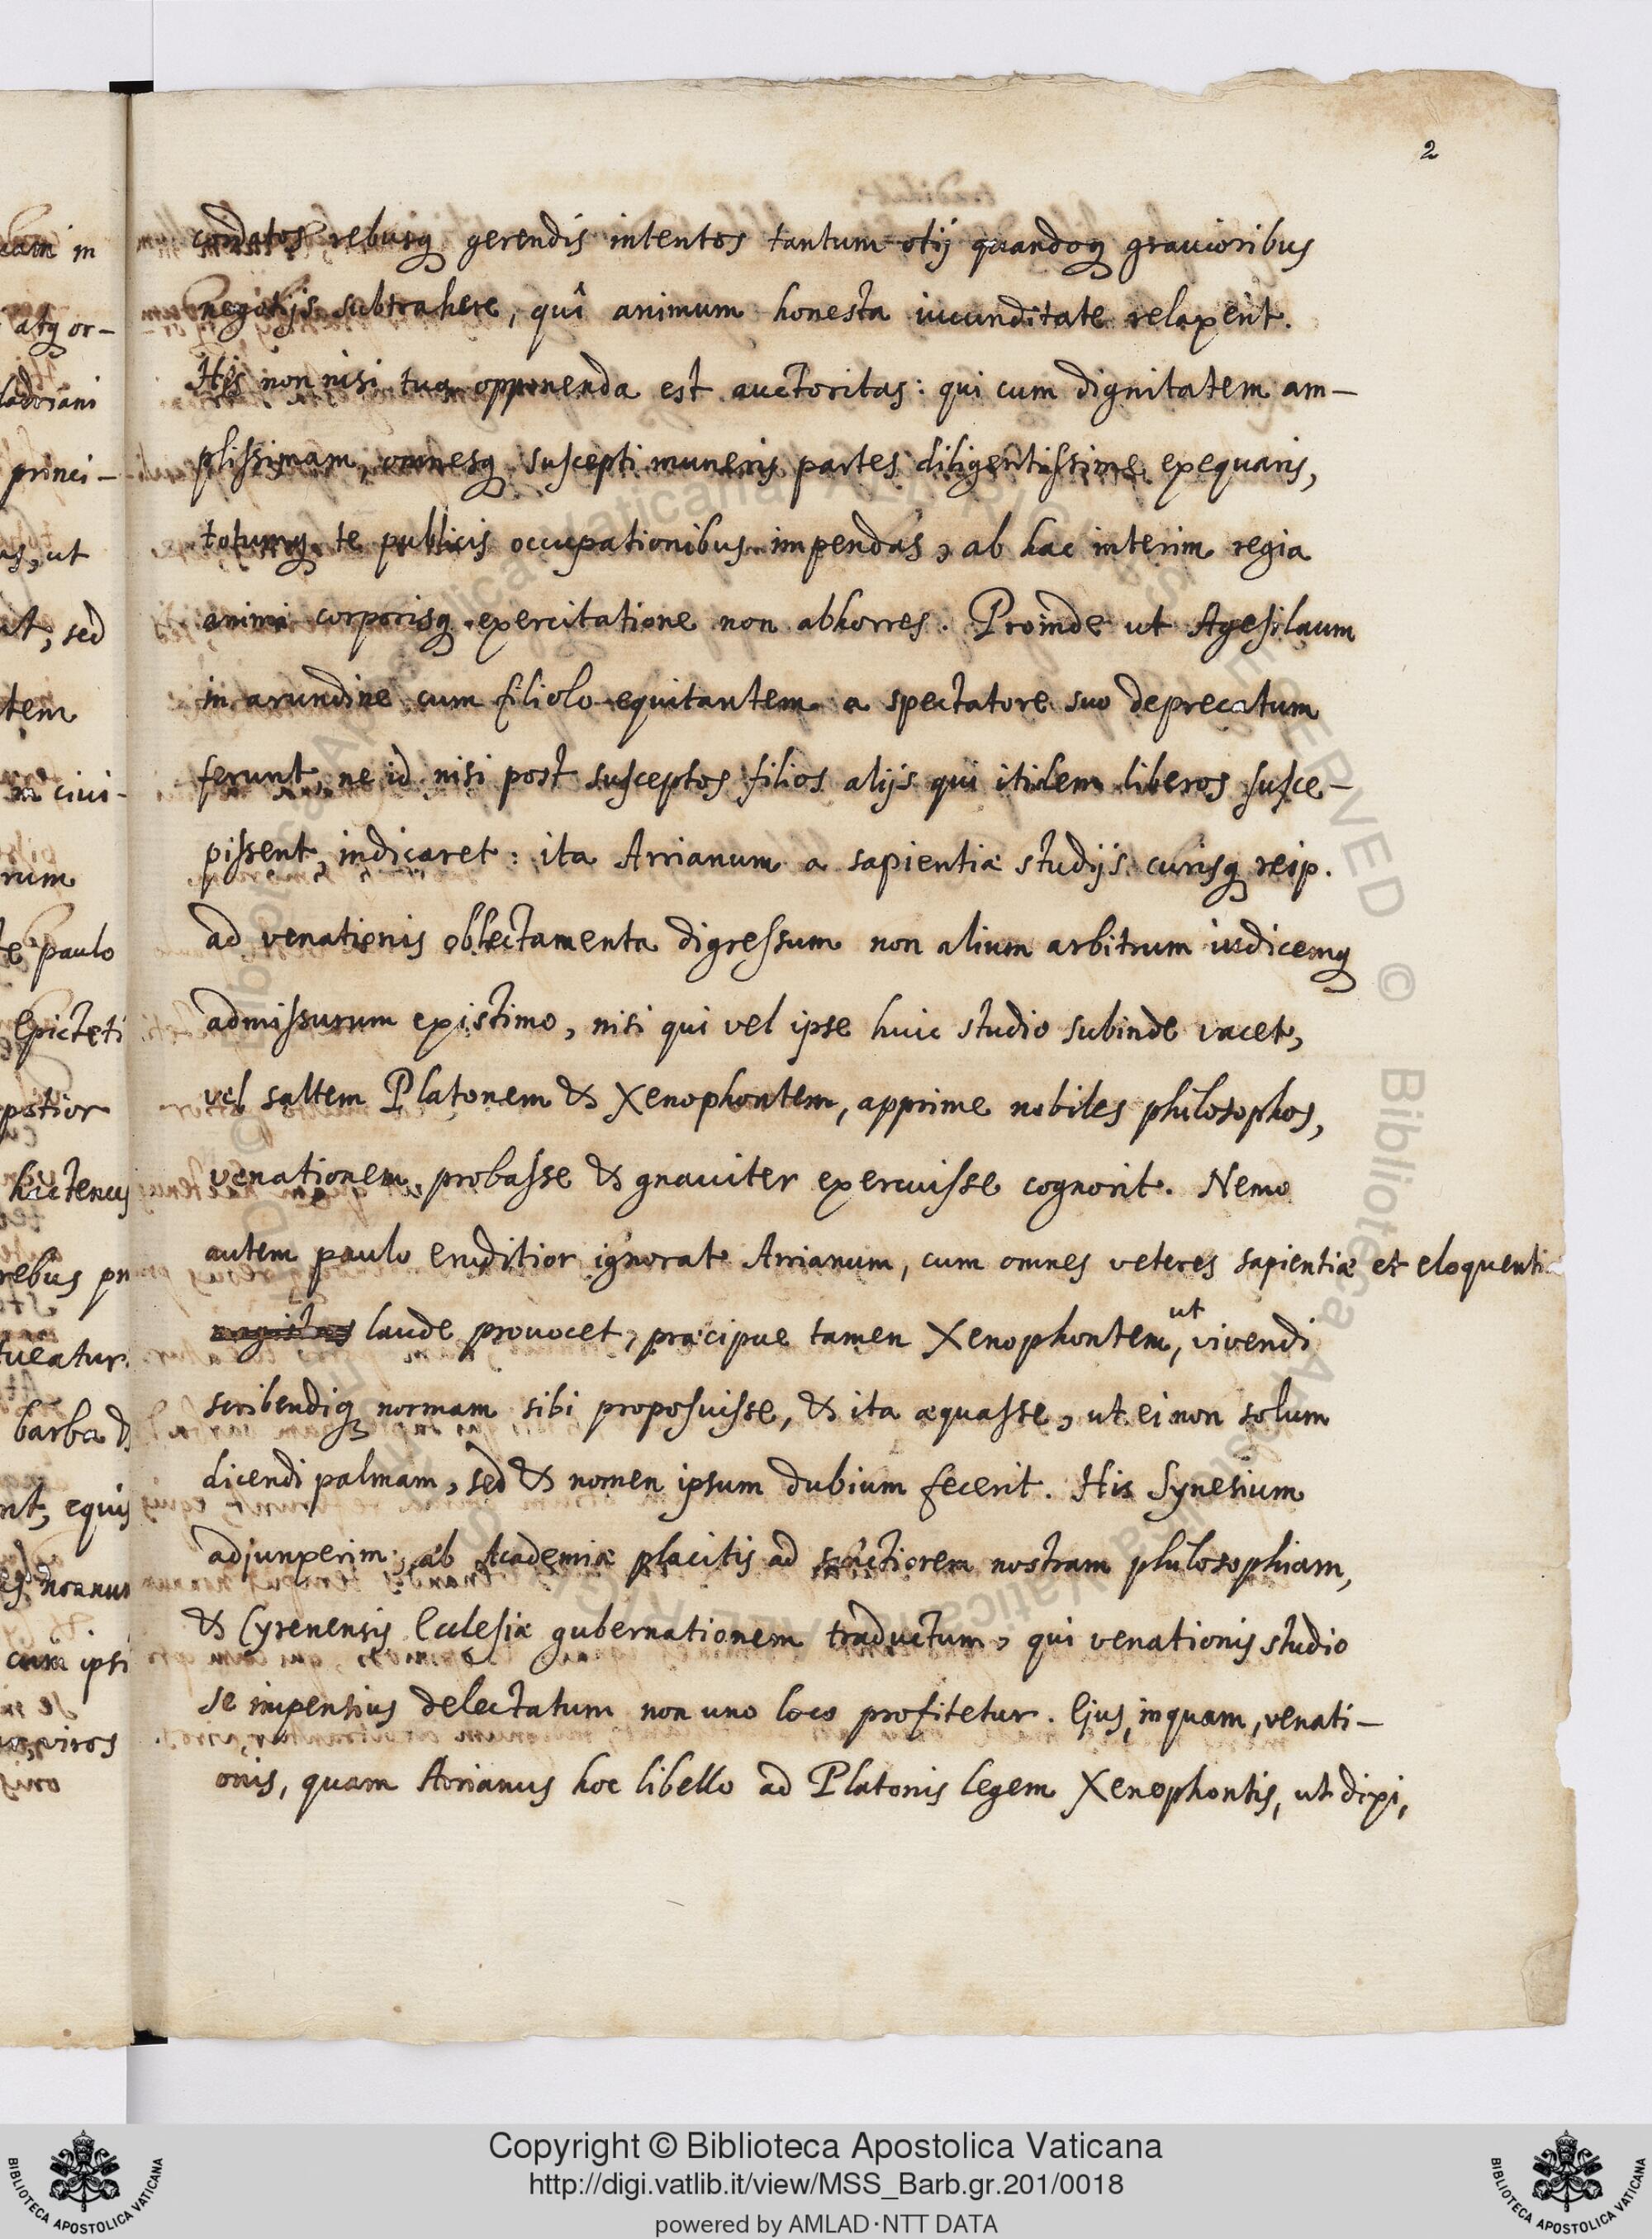 2
cordatos rebusq gerendis intentos tantum otij quandoq grauioribus
negotijs subtrahere, quî animum honesta iucunditate relaxent.
His non nisi tua opponenda est auctoritas: qui cum dignitatem am-
plissimam, omnesq suscepti muneris partes diligentissime exequaris,
totumq te publicis occupationibus impendas, ab hac interim regia
animi corporisq exercitatione non abhorres. Proinde ut Agesilaum
in arundine cum filiolo equitantem a spectatore suo deprecatum
ferunt, ne id nisi post susceptos filios alijs qui itidem liberos susce-
pissent, indicaret: ita Arrianum a sapientiæ studijs curisq reip.
ad venationis oblectamenta digressum non alium arbitrum iudicemq
admissurum existimo, nisi qui vel ipse huic studio subinde vacet,
vel saltem Platonem & Xenophontem, apprime nobiles philosophos,
venationem probasse & gnauiter exercuisse cognorit. Nemo
autem paulo eruditior ignorat Arrianum, cum omnes veteres sapientiæ et eloquenti
laude prouocet, præcipue tamen Xenophontem, ut vivendi
scribendiq normam sibi proposuisse, & ita æquasse, ut ei non solum
dicendi palmam, sed & nomen ipsum dubium fecerit. His Synesium
adjunxerim, ab Academiæ placitis ad sanctiorem nostram philosophiam,
& Cyrenensis Ecclesiæ gubernationem traductum, qui venationis studio
se impensius delectatum non uno loco profitetur. Ejus, inquam, venati-
onis, quam Arrianus hoc libello ad Platonis legem Xenophontis, ut dixi,
eam in
atq or-
princi-
us, ut
it, sed
tem
civi-
rum
te paulo
Epicteti
patior
hactenus
rebus pu
tueatur.
barba &
nt, equis
cum ipsi
viros
Copyright © Biblioteca Apostolica Vaticana
http://digi.vatlib.it/view/MSS_Barb.gr.201/0018
powered by AMLAD·NTT DATA
BIBLIOTECA APOSTOLICA VATICANA
BIBLIOTECA APOSTOLICA VATICANA